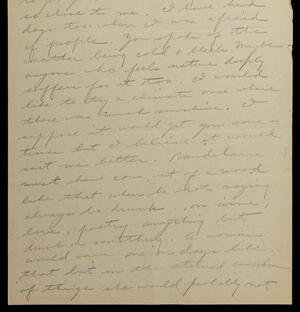 so close to me. I have had
days too when I was afraid
of people. You spoke of the
weather being cold & bleak. Maybe
anyone who feels nature deeply
suffers for it too. I would
like to try a climate once where
there was much sunshine. I
suppose it would get you some-
times but I believe it would
suit me better. Baudelaire
must have come out of a mood
like that when he wrote saying
always be drunk, on wine,
love, poetry anything but
drunk on something. A woman
would save one on days like
that but in the eternal
of things she would probably not